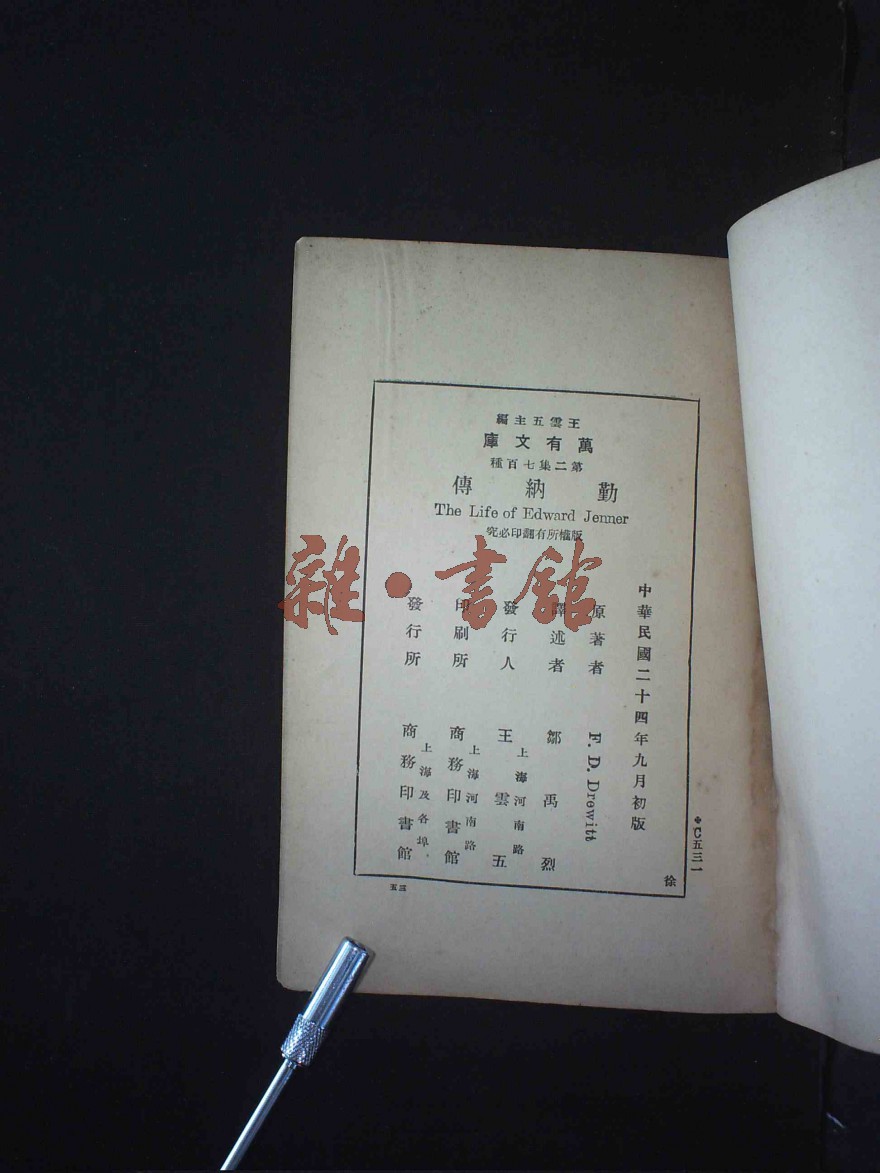 王雲五主編
萬有文庫
第二集七百種
勤納傳
The Life of Edward Jenner
版權所有翻印必究
中華民國二十四年九月初版
原著者 F. D. Drewitt
譯述者 鄒禹烈
發行人 王雲五
上海河南路
印刷所 商務印書館
上海河南路
發行所 商務印書館
上海及各埠
徐
雜·書館